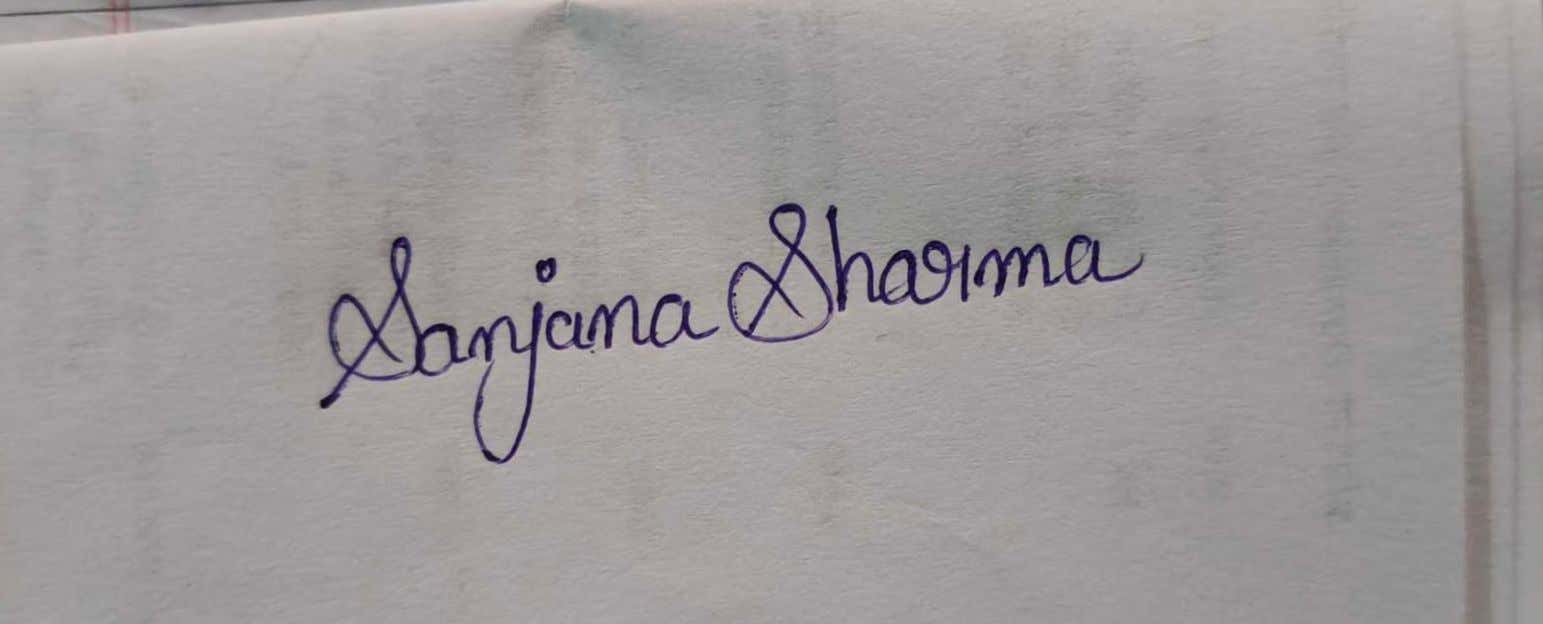 Sanjana Sharma